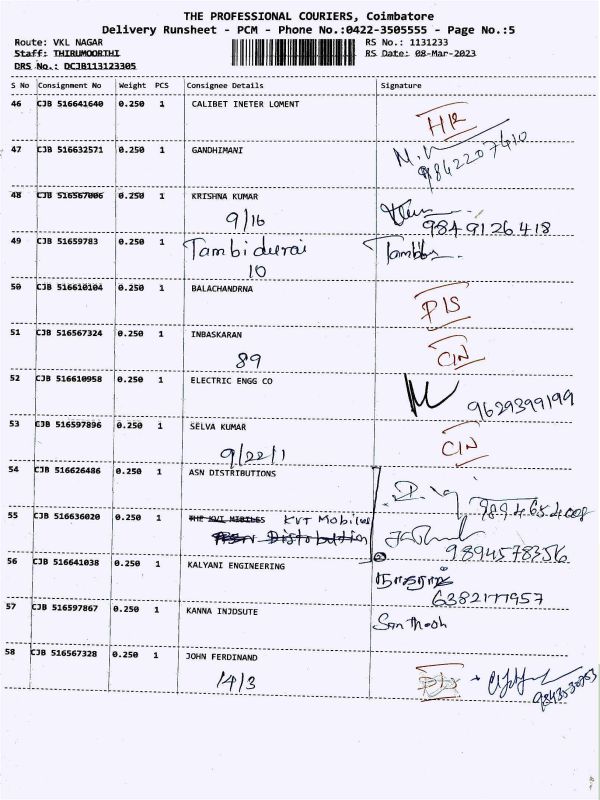 THE PROFESSIONAL COURIERS, Coimbatore
Delivery Runsheet - PCM - Phone No.:0422-3505555 - Page No.:5
Route: VKL NAGAR RS No.: 1131233
Staff: THIRUMOORTHI RS Date: 08-Mar-2023
DRS No.: DCJB113123305
S No Consignment No Weight PCS Consignee Details Signature
46 CJB 516641640 0.250 1 CALIBET INETER LOMENT
47 CJB 516632571 0.250 1 GANDHIMANI 9842207410
48 CJB 516567006 0.250 1 KRISHNA KUMAR
9/16 9849126418
49 CJB 51659783 0.250 1 Tambidurai
10
50 CJB 516610104 0.250 1 BALACHANDRNA
51 CJB 516567324 0.250 1 INBASKARAN CIN
89
52 CJB 516610958 0.250 1 ELECTRIC ENGG CO 9629399199
53 CJB 516597896 0.250 1 SELVA KUMAR CIN
9/22/1
54 CJB 516626486 0.250 1 ASN DISTRIBUTIONS
55 CJB 516636020 0.250 1 THE KVI MIBILES KVT Mobiles
Distribution 9894578356
56 CJB 516641038 0.250 1 KALYANI ENGINEERING
6382177957
57 CJB 516597867 0.250 1 KANNA INJDSUTE Santhosh
58 CJB 516567328 0.250 1 JOHN FERDINAND
14/3